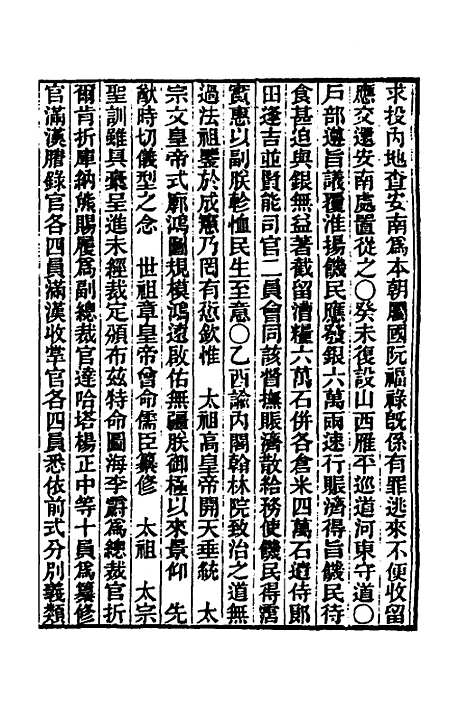 求投內地查安南爲本朝屬國阮福祿既係有罪逃來不便收留
應交還安南處置從之○癸未復設山西雁平巡道河東守道○
戶部遵旨議覆淮揚饑民應發銀六萬兩速行賑濟得旨饑民待
食甚迫與銀無益著截留漕糧六萬石併各倉米四萬石遣侍郎
田逢吉並賢能司官二員會同該督撫賑濟散給務使饑民得霑
實惠以副朕軫恤民生至意○乙酉諭內閣翰林院致治之道無
過法祖鑒於成憲乃罔有愆欽惟　太祖高皇帝開天垂統　太
宗文皇帝式廓鴻圖規模鴻遠啟佑無疆朕御極以來景仰　先
猷時切儀型之念　世祖章皇帝曾命儒臣纂修　太祖　太宗
聖訓雖具稾呈進未經裁定頒布茲特命圖海李霨爲總裁官折
爾肯折庫納熊賜履爲副總裁官達哈塔楊正中等十員爲纂修
官滿漢謄錄官各四員滿漢收掌官各四員悉依前式分別義類